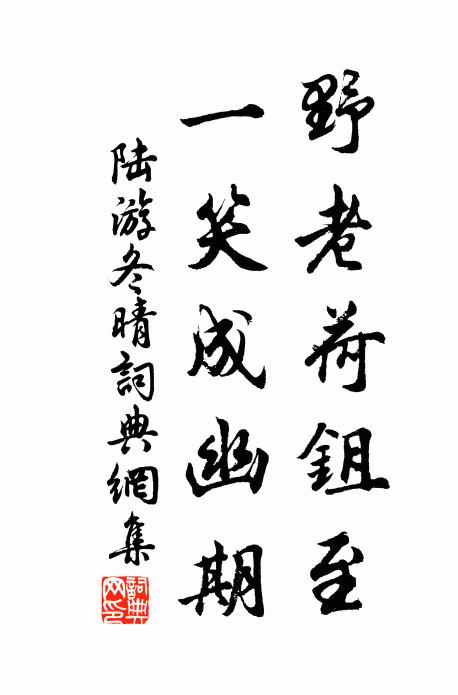 野老荷鉏至
一笑成幽期
陆游冬晴詞典網集
詞典网印